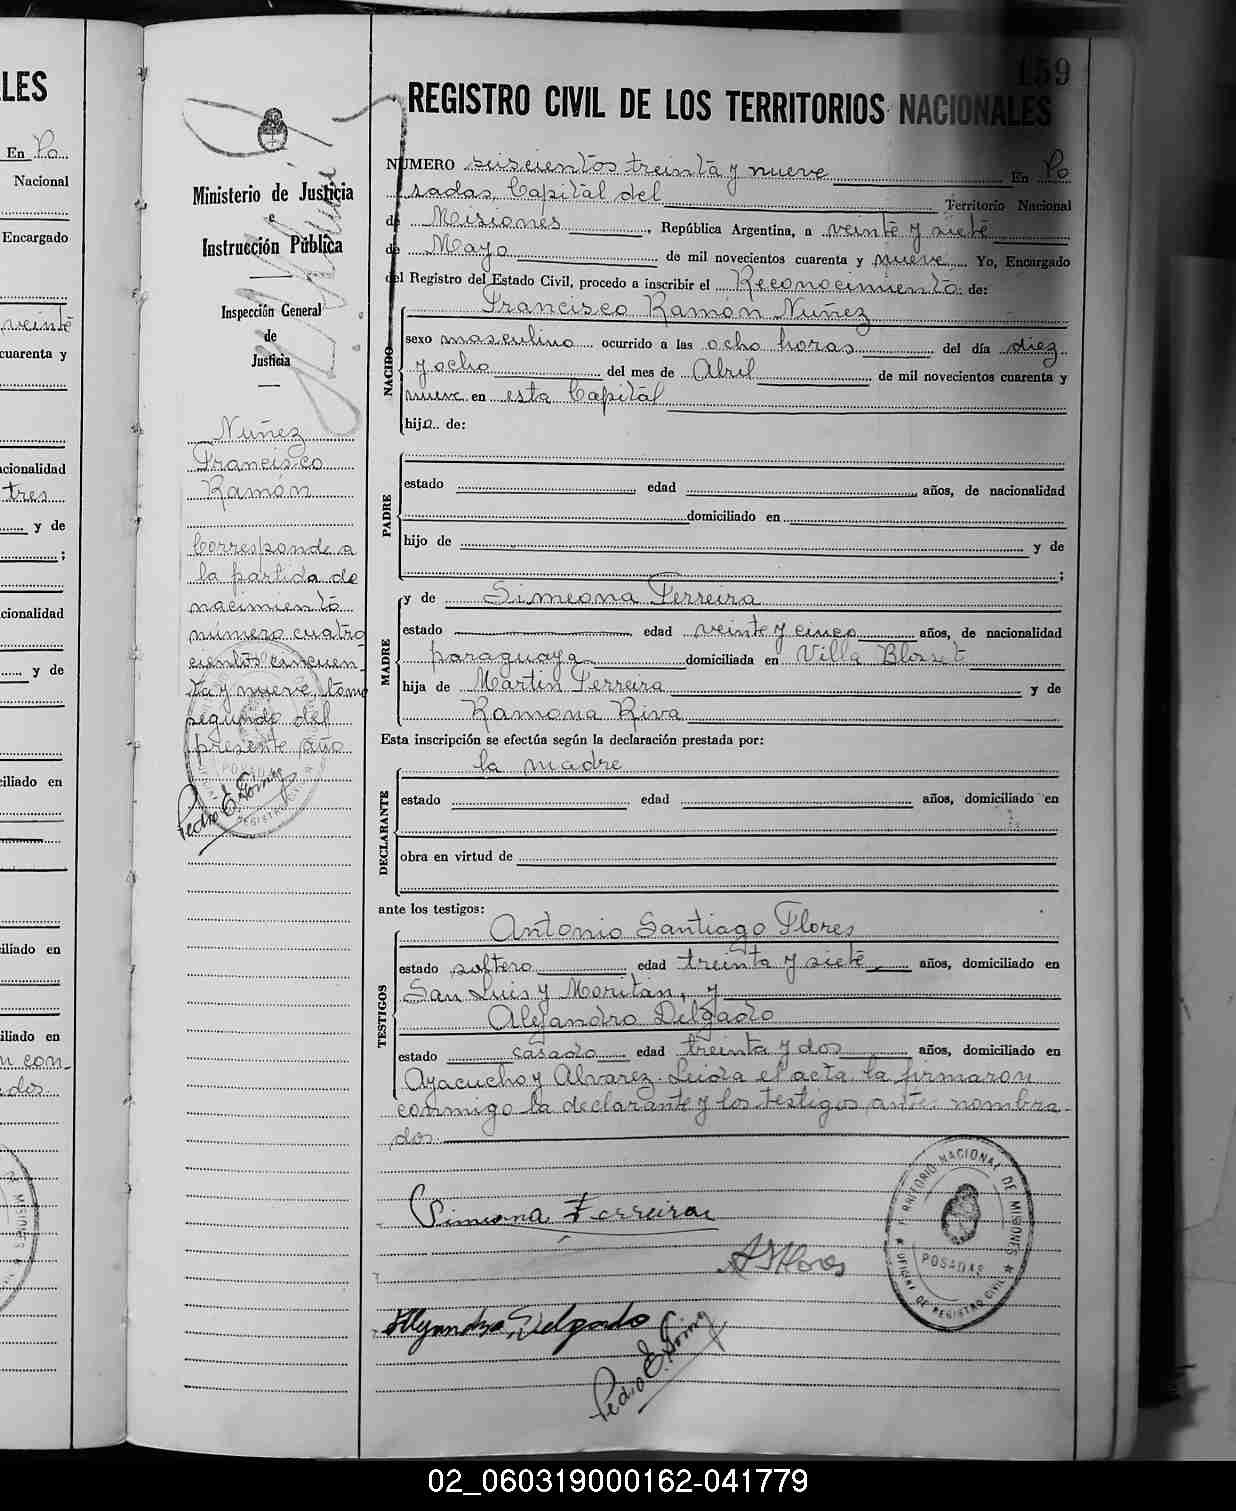 LES
En Po
Nacional
Encargado
veinte
cuarenta y
cionalidad
tres
y de
;
cionalidad
y de
ciliado en
iliado en
iliado en
n con-
dos
159
REGISTRO CIVIL DE LOS TERRITORIOS NACIONALES
Ministerio de Justicia
e
Instrucción Pública
Inspección General
de
Justicia
Nuñez
Francisco
Ramón
Corresponde a
la partida de
nacimiento
número cuatro
cientos cincuen-
ta y nueve, tomo
segundo del
presente año
NUMERO seiscientos treinta y nueve En Po
sadas, Capital del Territorio Nacional
de Misiones, República Argentina, a veinte y siete
de Mayo de mil novecientos cuarenta y nueve Yo, Encargado
del Registro del Estado Civil, procedo a inscribir el Reconocimiento de:
NACIDO
Francisco Ramón Nuñez
sexo masculino ocurrido a las ocho horas del día diez
y ocho del mes de Abril de mil novecientos cuarenta y
nueve en esta Capital
hijo de:
PADRE
estado edad años, de nacionalidad
domiciliado en
hijo de y de
;
MADRE
y de Simeona Ferreira
estado edad veinte y cinco años, de nacionalidad
paraguaya domiciliada en Villa Blosset
hija de Martin Ferreira y de
Ramona Riva
Esta inscripción se efectúa según la declaración prestada por:
DECLARANTE
la madre
estado edad años, domiciliado en
obra en virtud de
ante los testigos:
TESTIGOS
Antonio Santiago Flores
estado soltero edad treinta y siete años, domiciliado en
San Luis y Moritán, y
Alejandro Delgado
estado casado edad treinta y dos años, domiciliado en
Ayacucho y Alvarez. Leida el acta, la firmaron
conmigo la declarante y los testigos ante. nombra-
dos.
Simeona Ferreira
A S Flores
Alejandro Delgado
Pedro E.
TERRITORIO NACIONAL DE MISIONES
POSADAS
OFICINA DE REGISTRO CIVIL
02_060319000162-041779